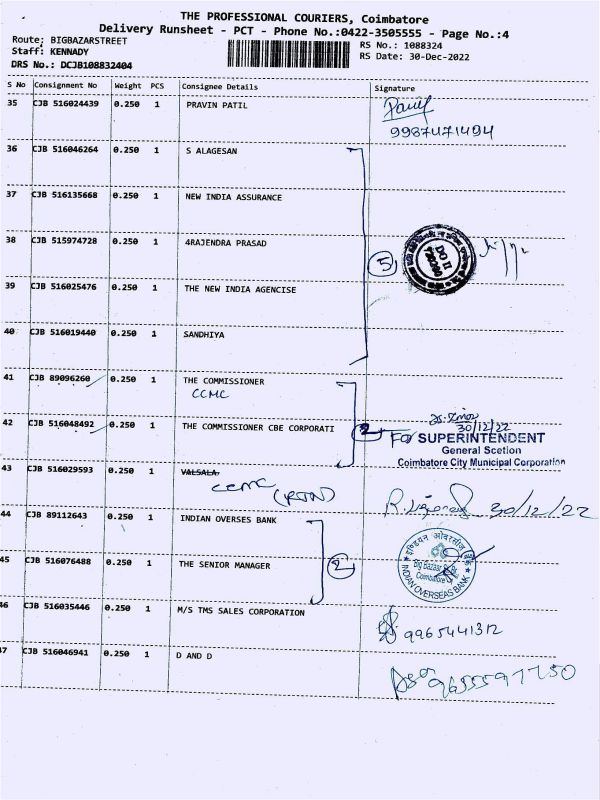 THE PROFESSIONAL COURIERS, Coimbatore
Delivery Runsheet - PCT - Phone No.:0422-3505555 - Page No.:4
Route: BIGBAZARSTREET
RS No.: 1088324
Staff: KENNADY
RS Date: 30-Dec-2022
DRS No.: DCJB108832404
S No Consignment No Weight PCS Consignee Details Signature
35 CJB 516024439 0.250 1 PRAVIN PATIL
9987471494
36 CJB 516046264 0.250 1 S ALAGESAN
37 CJB 516135668 0.250 1 NEW INDIA ASSURANCE
38 CJB 515974728 0.250 1 4RAJENDRA PRASAD
5
DO II
39 CJB 516025476 0.250 1 THE NEW INDIA AGENCISE
40 CJB 516019440 0.250 1 SANDHIYA
41 CJB 89096260 0.250 1 THE COMMISSIONER
CCMC
42 CJB 516048492 0.250 1 THE COMMISSIONER CBE CORPORATI
2
30/12/22
For SUPERINTENDENT
General Scetion
Coimbatore City Municipal Corporation
43 CJB 516029593 0.250 1 VALSALA.
CCMC
30/12/22
44 CJB 89112643 0.250 1 INDIAN OVERSES BANK
इण्डियन ओवरसीज़ बैंक
Big Bazaar St. Br.
Coimbatore
INDIAN OVERSEAS BANK
45 CJB 516076488 0.250 1 THE SENIOR MANAGER
2
46 CJB 516035446 0.250 1 M/S TMS SALES CORPORATION
9965441312
47 CJB 516046941 0.250 1 D AND D
9655597750